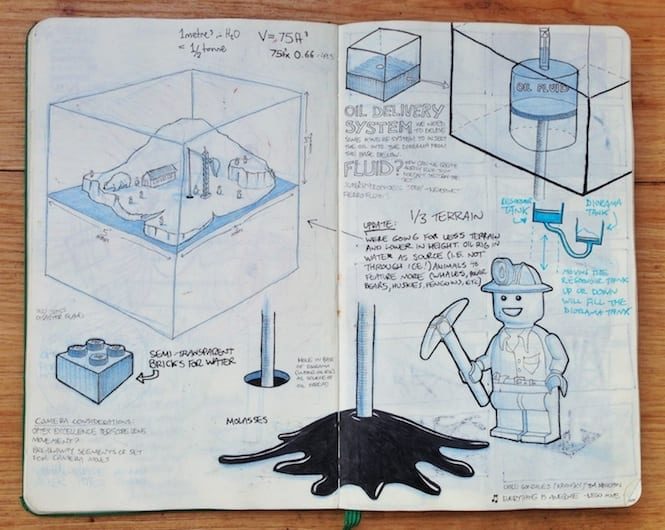 1 metre³ H₂O
= 1/2 tonne
V = .75A³
.75A² x 0.66
SEMI-TRANSPARENT
BRICKS FOR WATER
CAMERA CONSIDERATIONS:
OPTEX EXCELLENCE PERISCOPE LENS
MOVEMENT?
BREAKAWAY SEGMENTS OF SET
FOR CAMERA MOVES
HOLE IN BASE
OF DIORAMA
AS SOURCE OF
OIL SPREAD
MOLASSES
OIL DELIVERY
SYSTEM WE NEED
TO DEVISE
SOME KIND OF SYSTEM TO INJECT
THE OIL INTO THE DIORAMA FROM
THE BASE BELOW.
FLUID? HOW CAN WE CREATE
OIL FLUID
UPDATE: 1/3 TERRAIN
WE'RE GOING FOR LESS TERRAIN
AND LOWER IN HEIGHT. OIL RIG IN
WATER AS SOURCE (I.E. NOT
THROUGH ICE!) ANIMALS TO
FEATURE MORE (WHALES, POLAR
BEARS, HUSKIES, PENGUINS, ETC)
RESERVOIR
TANK
DIORAMA
TANK
MOVING THE
RESERVOIR TANK
UP OR DOWN
WILL FILL THE
DIORAMA TANK
♫ EVERYTHING IS AWESOME - LEGO MOVIE